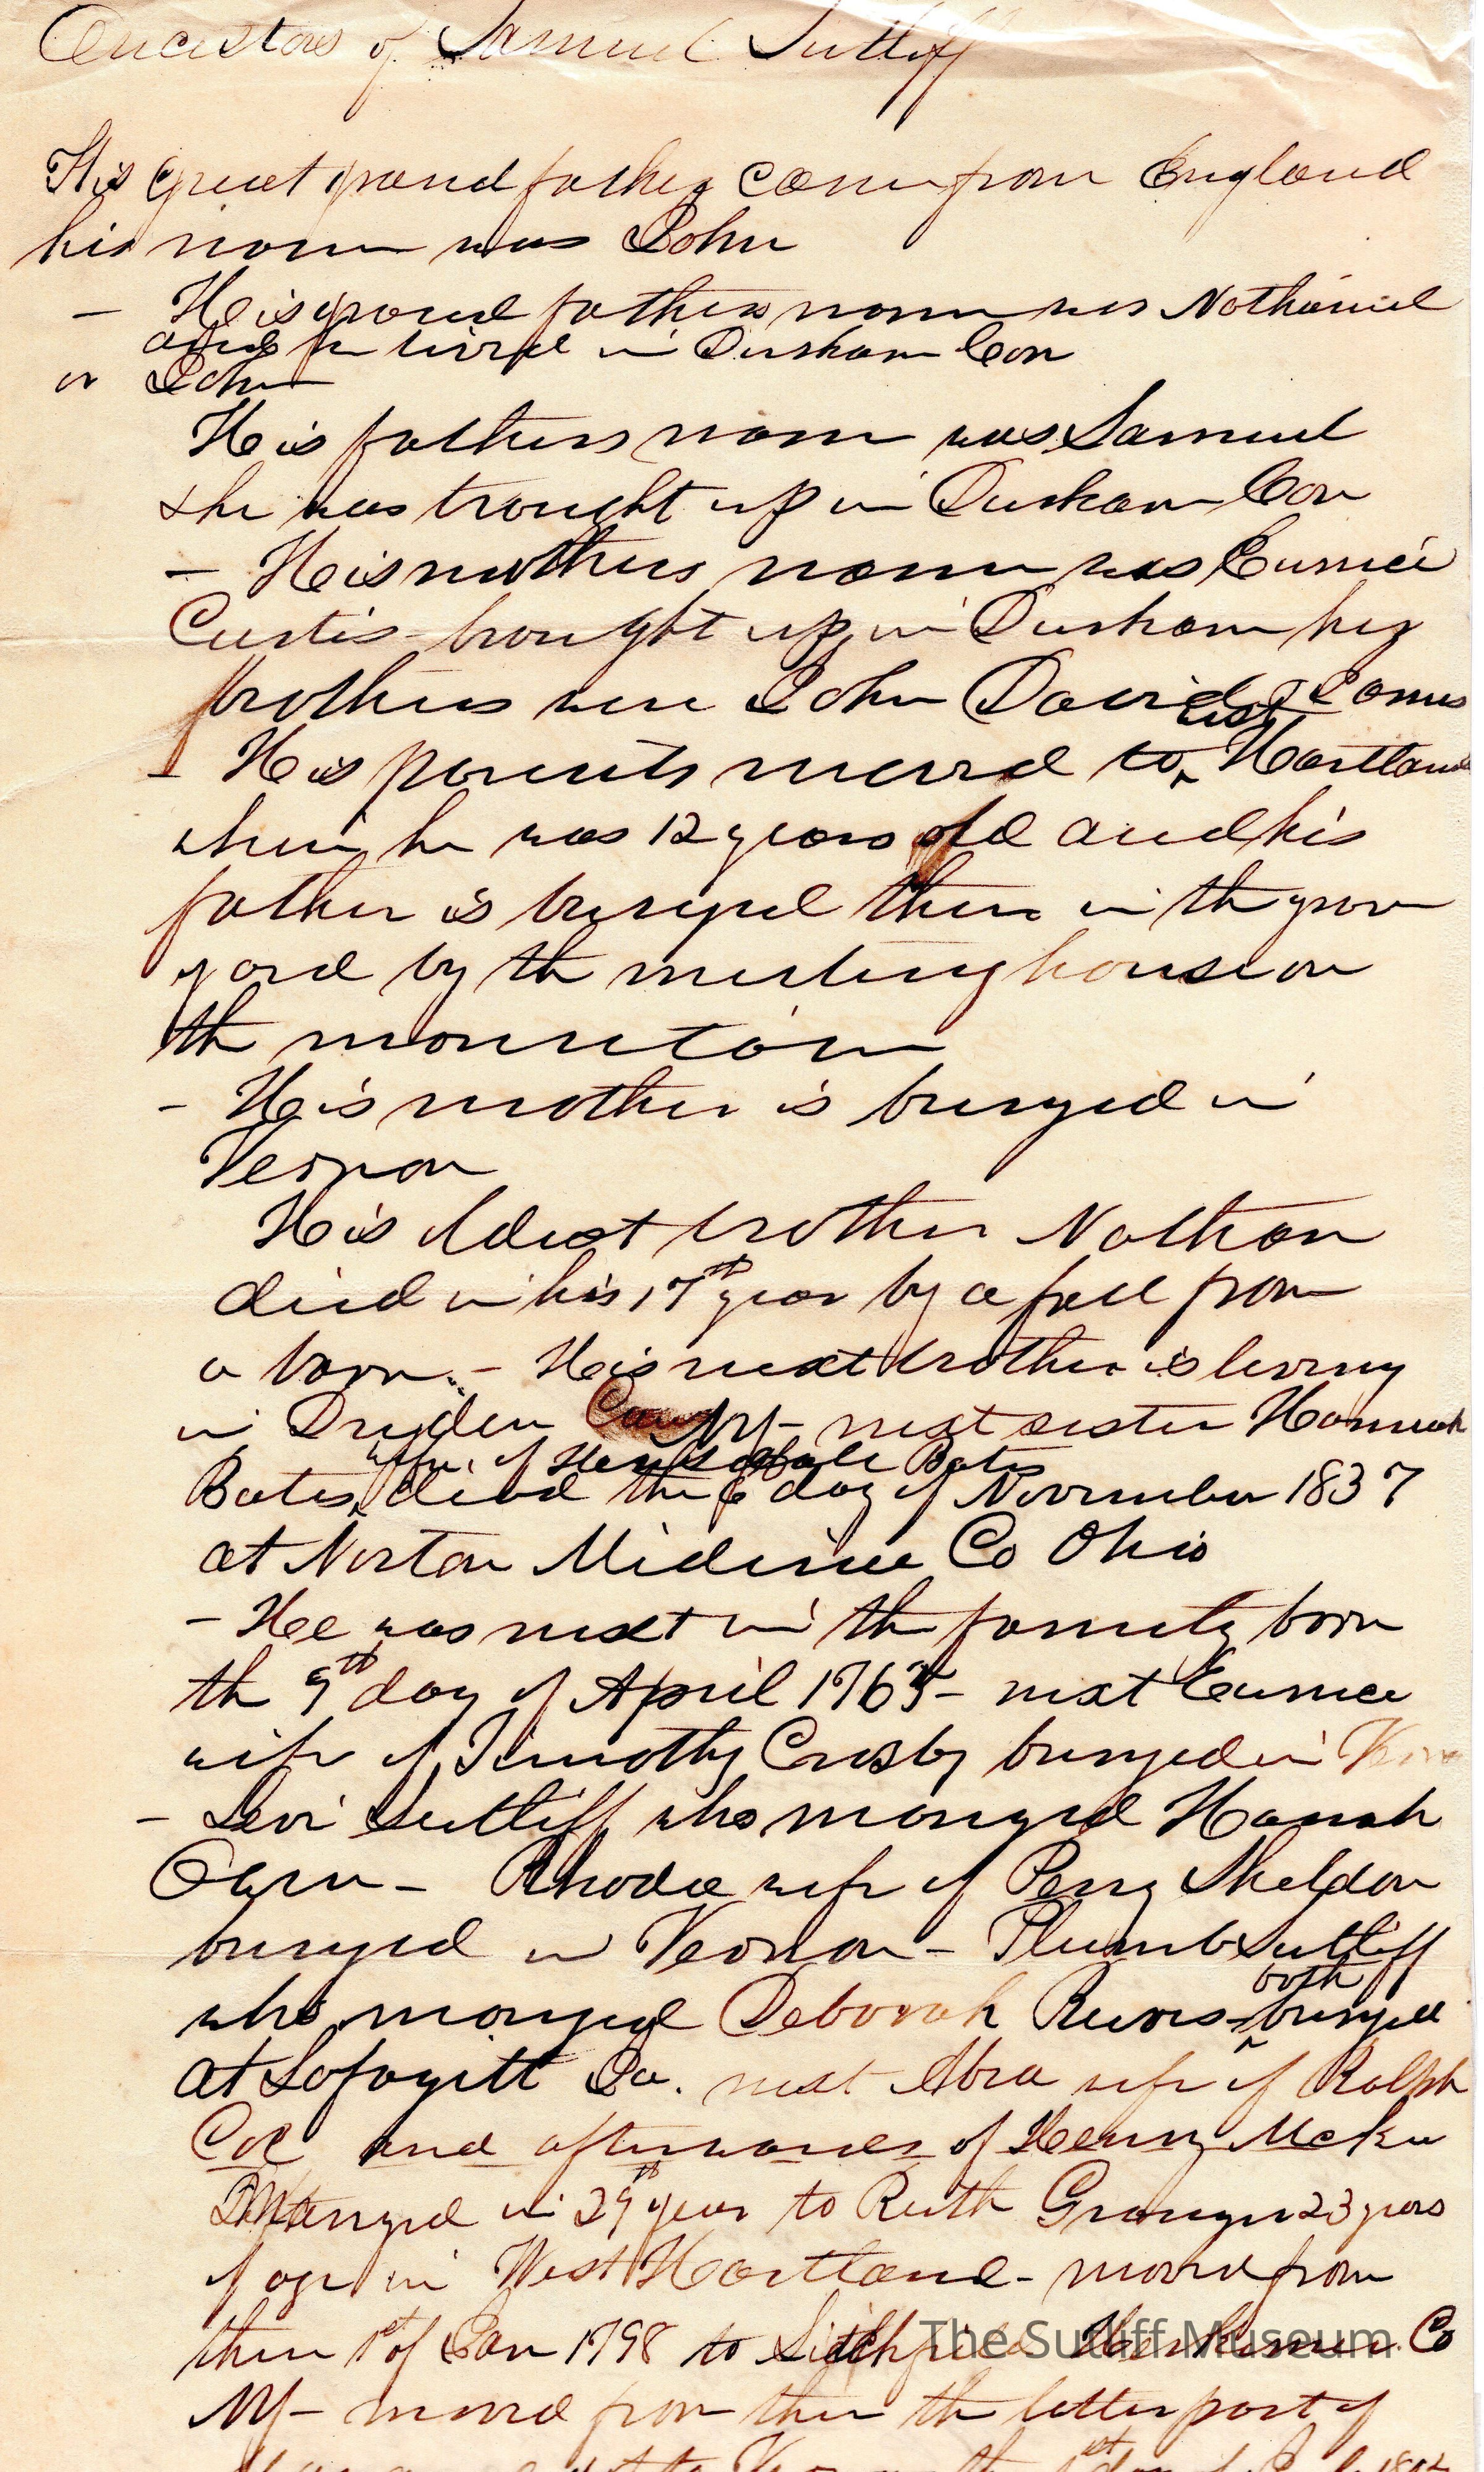 Ancestors of Samuel Sutliff
His great grand father came from England
his name was John
- His grand fathers name was Nathaniel
and he lived in Durham Con
or John
His fathers name was Samuel
& he was brought up in Durham Con
- His mothers name was Eunice
Curtis - brought up in Durham her
brothers were John David & James
west
- His parents moved to ^ Hartland
when he was 12 years old and his
father is buryed there in the grave
yard by the meeting house on
the mountain
- His mother is buryed in
Vernon
His oldest brother Nathan
died in his 17th year by a fall from
a barn. - His next brother is living
in Dryden NY - next sister Hannah
wife of Bates
Bates ^ died the 6 day of November 1837
at Norton Medina Co Ohio
- He was next in the family born
the 9th day of April 1765 - next Eunice
wife of Timothy Crosby buryed in
- Levi Sutliff who maryed Hanah
- Rhoda wife of Perry Sheldon
buryed in Vernon - Plumb Sutliff
both
who maryed Deborah Reeves - ^ buryed
at Lafayett Ia. next Abra wife of Ralph
Coe and afterwards of Henry McKee
Maryed in 29th year to Ruth Granger 23 years
of age in West Hartland - moved from
there 1st of Jan 1798 to Litchfield Herkimer Co
NY - moved from there the latter part of
The Sutliff Museum